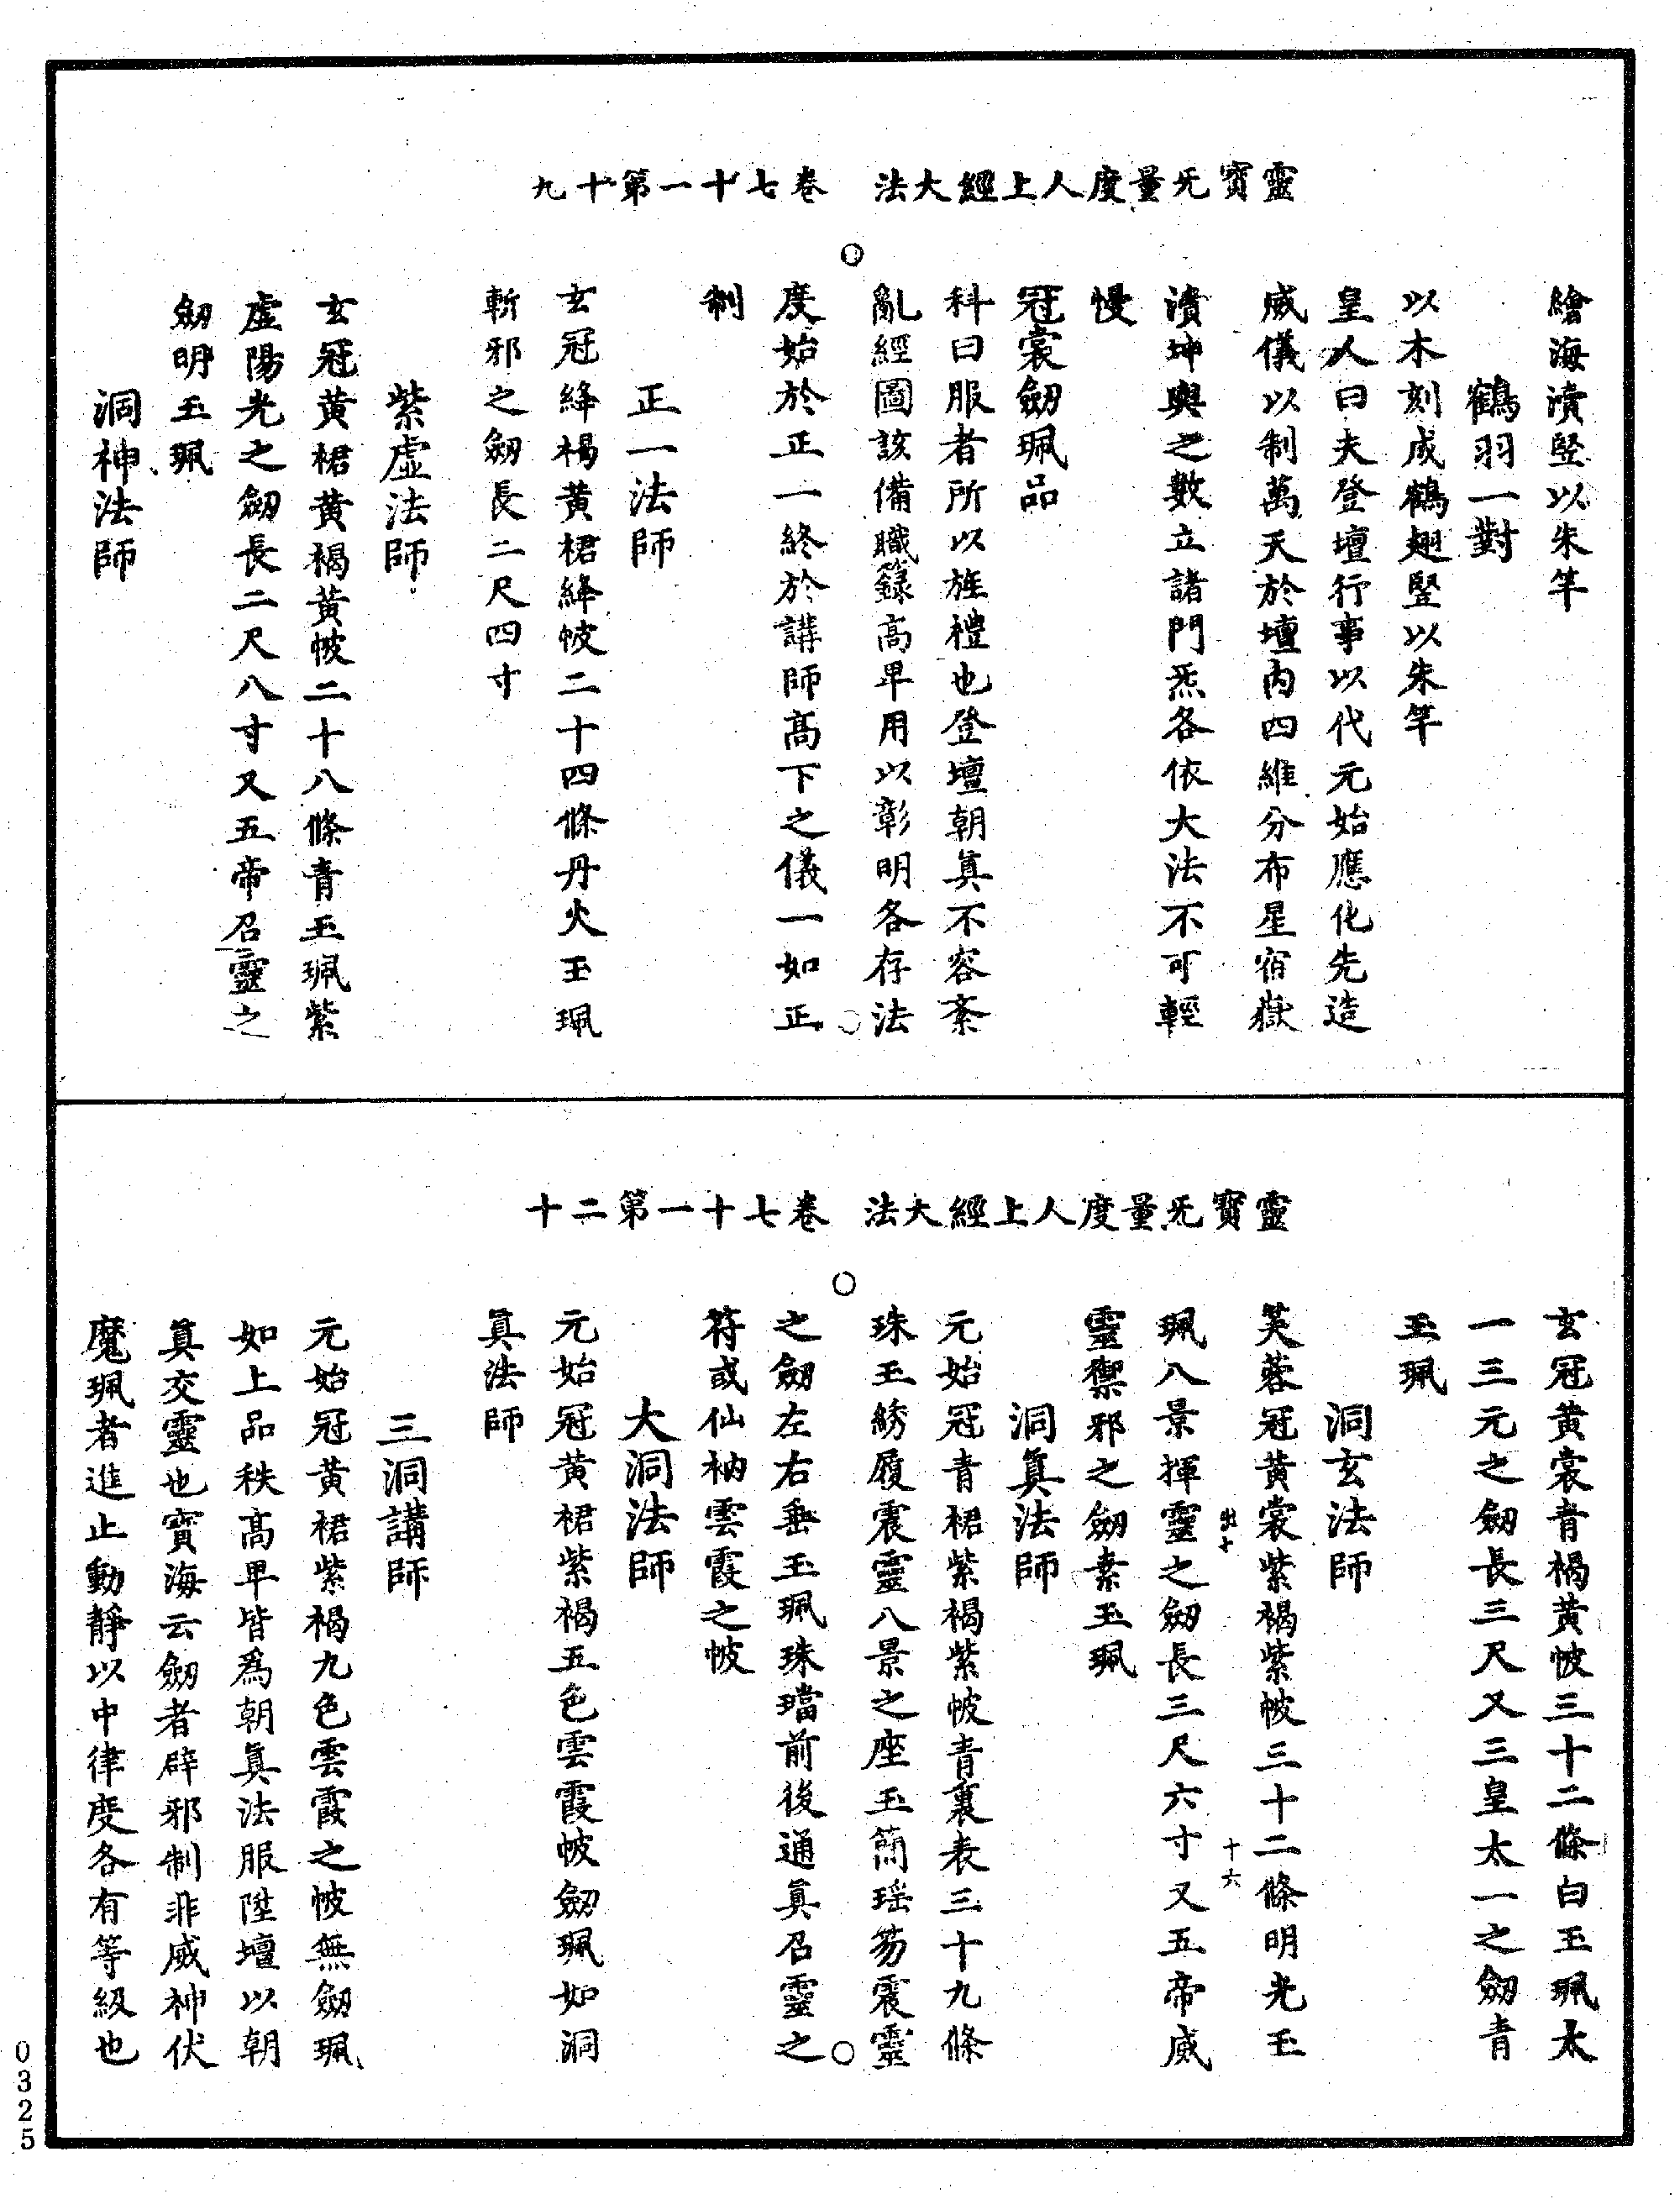 靈寶旡量度人上經大法　卷七十一第十九
繪海瀆竪以朱竿
鶴羽一對
以木刻成鶴翅竪以朱竿
皇人曰夫登壇行事以代元始應化先造
威儀以制萬天於壇内四維分布星宿嶽
瀆坤輿之數立諸門炁各依大法不可輕
慢
冠裳劒珮品
科曰服者所以旌禮也登壇朝眞不容紊
亂經圖該備職籙高卑用以彰明各存法
度始於正一終於講師髙下之儀一如正
制
正一法師
玄冠絳褐黄裙絳帔二十四條丹火玉珮
斬邪之劒長二尺四寸
紫虛法師
玄冠黄裙黄褐黄帔二十八條青玉珮紫
虛陽光之劒長二尺八寸又五帝召靈之
劒明玉珮
洞神法師
靈寶旡量度人上經大法　卷七十一第二十
玄冠黄裳青褐黄帔三十二條白玉珮太
一三元之劒長三尺又三皇太一之劒青
玉珮
洞玄法師
芙蓉冠黄裳紫褐紫帔三十二條明光玉
出十　十六
珮八景揮靈之劒長三尺六寸又五帝威
靈禦邪之劒素玉珮
洞眞法師
元始冠青裙紫褐紫帔青裏表三十九條
珠玉綉履震靈八景之座玉簡瑶笏震靈
之劒左右垂玉珮珠璫前後通眞召靈之
符或仙衲雲霞之帔
大洞法師
元始冠黄裙紫褐五色雲霞帔劒珮如洞
眞法師
三洞講師
元始冠黄裙紫褐九色雲霞之帔無劒珮
如上品秩高卑皆爲朝眞法服陞壇以朝
眞交靈也寳海云劒者辟邪制非威神伏
魔珮者進止動靜以中律度各有等級也
0325